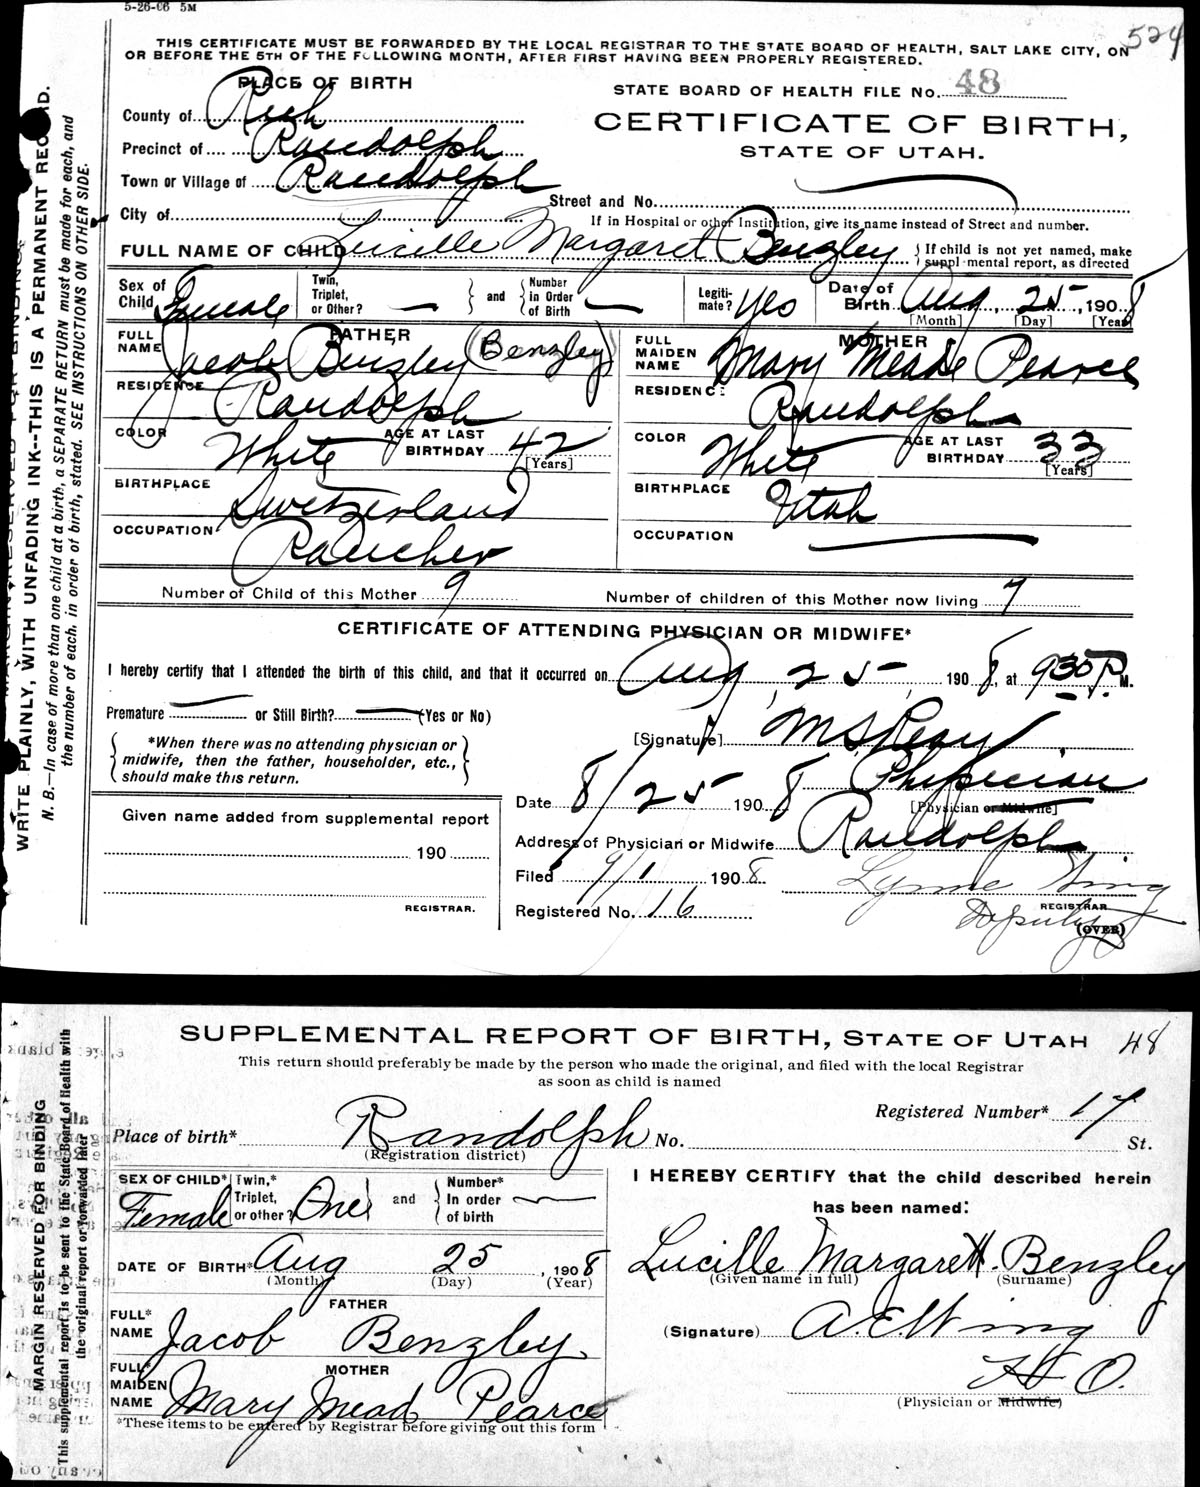 5-26-06 5M
524
THIS CERTIFICATE MUST BE FORWARDED BY THE LOCAL REGISTRAR TO THE STATE BOARD OF HEALTH, SALT LAKE CITY, ON
OR BEFORE THE 5TH OF THE FOLLOWING MONTH, AFTER FIRST HAVING BEEN PROPERLY REGISTERED.
PLACE OF BIRTH
STATE BOARD OF HEALTH FILE No. 48
County of Rich
CERTIFICATE OF BIRTH,
Precinct of Randolph
STATE OF UTAH.
Town or Village of Randolph
Street and No.
City of
If in Hospital or other Institution, give its name instead of Street and number.
FULL NAME OF CHILD Lucille Margaret Benzley { If child is not yet named, make supplemental report, as directed
Sex of Child Female Twin, Triplet, or Other? — } and { Number in Order of Birth — Legiti-mate? Yes Date of Birth Aug, 25, 1908
[Month] [Day] [Year]
FATHER
FULL NAME Jacob Benzley (Benzley)
RESIDENCE Randolph
COLOR White AGE AT LAST BIRTHDAY 42
[Years]
BIRTHPLACE Switzerland
OCCUPATION Rancher
MOTHER
FULL MAIDEN NAME Mary Meade Pearce
RESIDENCE Randolph
COLOR White AGE AT LAST BIRTHDAY 33
[Years]
BIRTHPLACE Utah
OCCUPATION —
Number of Child of this Mother 9 Number of children of this Mother now living 7
CERTIFICATE OF ATTENDING PHYSICIAN OR MIDWIFE*
I hereby certify that I attended the birth of this child, and that it occurred on Aug, 25, 1908, at 930 P. M.
Premature — or Still Birth? — (Yes or No)
{ *When there was no attending physician or
midwife, then the father, householder, etc.,
should make this return. }
[Signature]
Physician
Date 8/25 1908 [Physician or Midwife]
Address of Physician or Midwife Randolph
Filed 9/1 1908 Lynne Wing
REGISTRAR
Registered No. 16 Deputy
(OVER)
Given name added from supplemental report
190
REGISTRAR.
WRITE PLAINLY, WITH UNFADING INK--THIS IS A PERMANENT RECORD.
N. B.—In case of more than one child at a birth, a SEPARATE RETURN must be made for each, and
the number of each, in order of birth, stated. SEE INSTRUCTIONS ON OTHER SIDE.
SUPPLEMENTAL REPORT OF BIRTH, STATE OF UTAH 48
This return should preferably be made by the person who made the original, and filed with the local Registrar
as soon as child is named
Registered Number* 17
Place of birth* Randolph No. St.
(Registration district)
SEX OF CHILD* Female Twin,* Triplet, or other? One and { Number* In order of birth —
DATE OF BIRTH* Aug 25, 1908
(Month) (Day) (Year)
FATHER
FULL* NAME Jacob Benzley
MOTHER
FULL* MAIDEN NAME Mary Mead Pearce
*These items to be entered by Registrar before giving out this form
I HEREBY CERTIFY that the child described herein
has been named:
Lucille Margarett Benzley
(Given name in full) (Surname)
(Signature) A.E. Wing
H O.
(Physician or Midwife)
MARGIN RESERVED FOR BINDING
This supplemental report is to be sent to the State Board of Health with
the original report or forwarded later